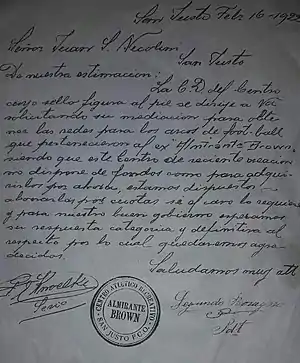 San Justo Feb 16-192
Señor Juan S. Nicolini
San Justo
De nuestra estimacion;
La C.D. del Centro
cuyo sello figura al pie se dirije a Vd.
solicitando su mediacion para obte-
ner las redes para los arcos de foot-ball
que pertenecieron al ex Almirante Brown
siendo que este centro de reciente creacion
no dispone de fondos como para adqui-
rirlos por ahora, estamos dispuestos
abonarlas por cuotas si el caso lo requiere
y para nuestro buen gobierno esperamos
su respuesta categorica y definitiva al
respecto por lo cual quedaremos agra-
decidos.
Saludamos muy att
Secrio
Segundo
Pdte
CENTRO ATLETICO RECREATIVO
ALMIRANTE
BROWN
SAN JUSTO F.C.O.